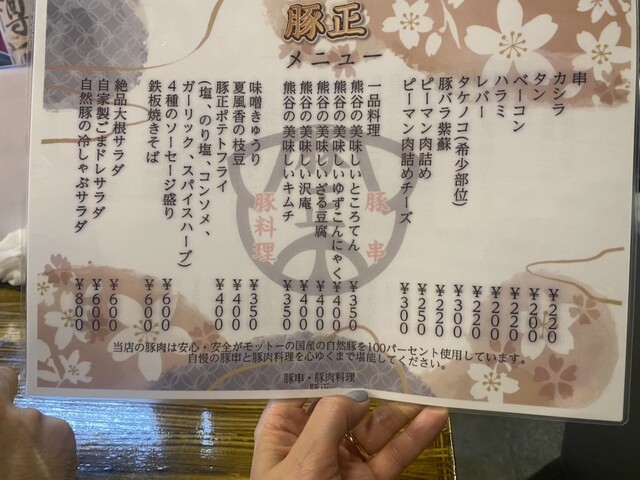 豚正
メニュー
串
カシラ ¥220
タン ¥220
ベーコン ¥220
ハラミ ¥200
レバー ¥220
タケノコ(希少部位) ¥300
豚バラ紫蘇 ¥220
ピーマン肉詰め ¥250
ピーマン肉詰めチーズ ¥300
一品料理
熊谷の美味しいところてん ¥350
熊谷の美味しいゆずこんにゃく ¥400
熊谷の美味しいざる豆腐 ¥400
熊谷の美味しい沢庵 ¥400
熊谷の美味しいキムチ ¥350
味噌きゅうり ¥350
夏風香の枝豆 ¥400
豚正ポテトフライ ¥400
(塩、のり塩、コンソメ、
ガーリック、スパイスハーブ)
4種のソーセージ盛り ¥600
鉄板焼きそば ¥600
絶品大根サラダ ¥600
自家製ごまドレサラダ ¥600
自然豚の冷しゃぶサラダ ¥800
豚串
豚料理
当店の豚肉は安心・安全がモットーの国産の自然豚を100パーセント使用しています。
自慢の豚串と豚肉料理を心ゆくまで堪能してください。
豚串・豚肉料理
豚正